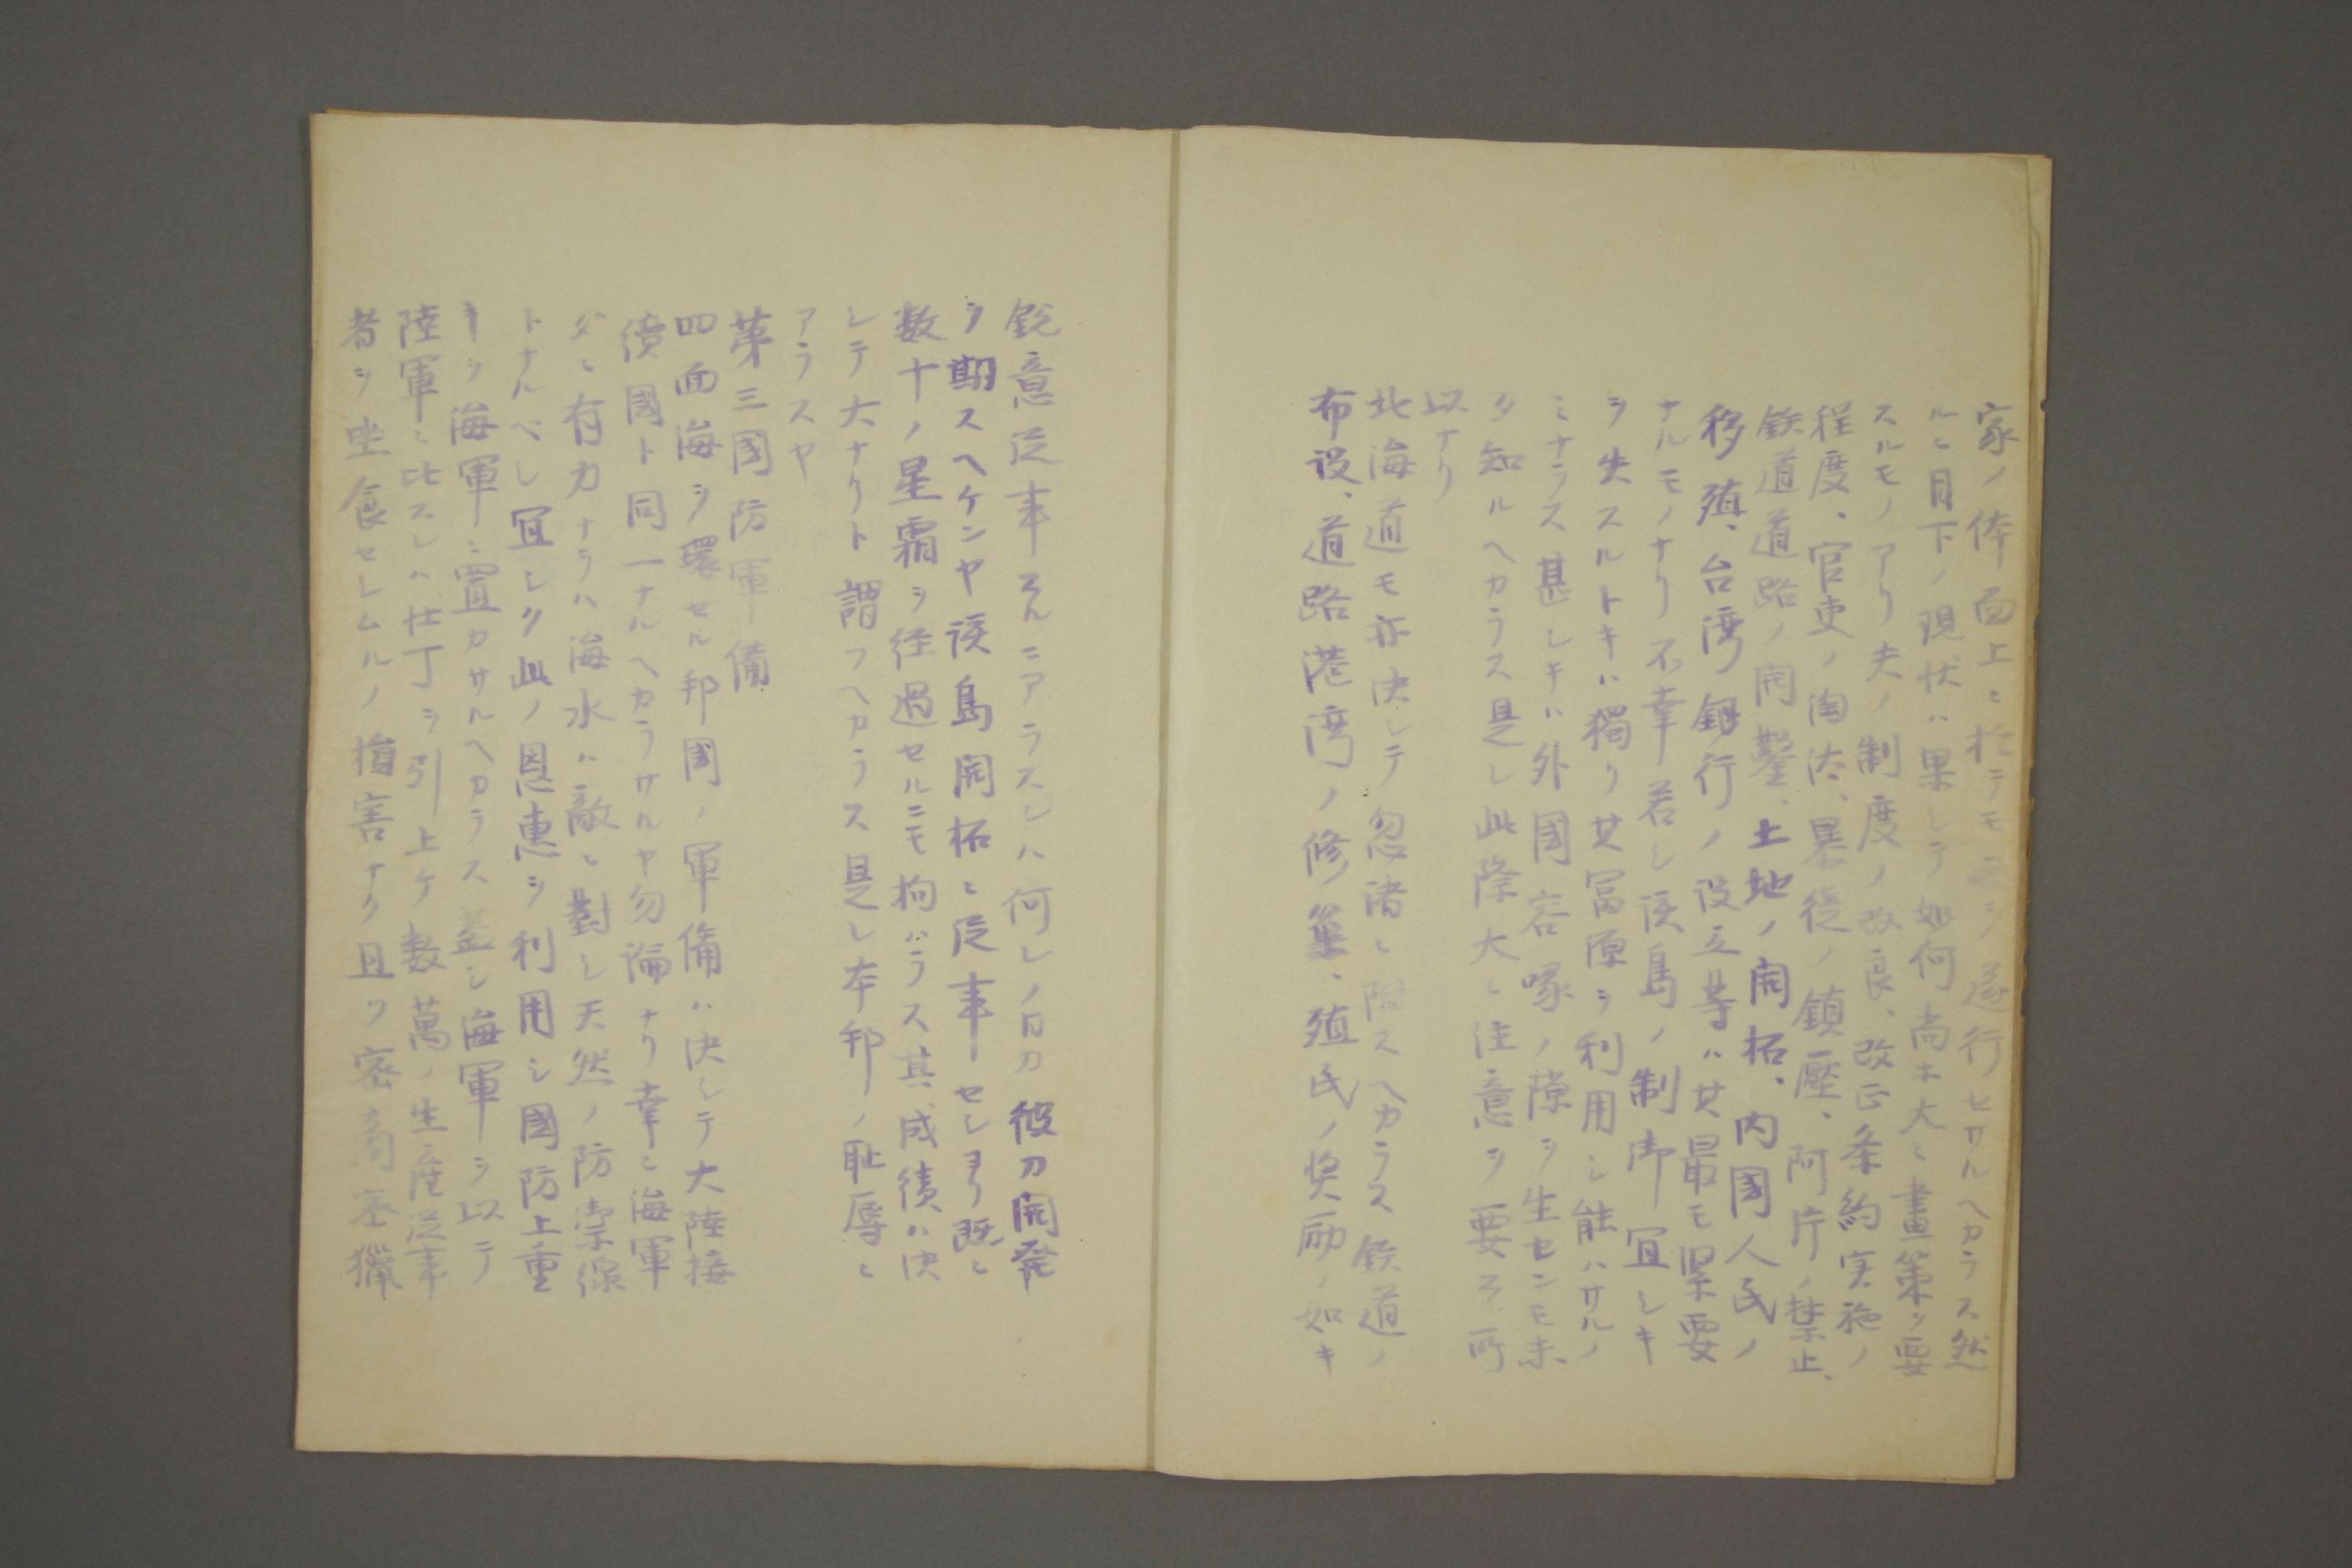 家ノ体面上ニ於テモ之ヲ遂行セサルヘカラス然
ルニ目下ノ現状ハ果シテ如何尚ホ大ニ畫策ヲ要
スルモノアリ夫ノ制度ノ改良、改正条約実施ノ
程度、官吏ノ淘汰、暴徒ノ鎮壓、阿片ノ禁止、
鉄道道路ノ開鑿、土地ノ開拓、内國人民ノ
移殖、台湾銀行ノ設立等ハ其最モ緊要
ナルモノナリ不幸若シ該島ノ制御宜シキ
ヲ失スルトキハ獨リ其冨源ヲ利用シ能ハサルノ
ミナラス甚シキハ外國容喙ノ隙ヲ生センモ未
タ知ルヘカラス是レ此際大ニ注意ヲ要スル所
以ナリ
北海道モ亦決シテ忽諸ニ附スヘカラス鉄道ノ
布設、道路港湾ノ修築、殖民ノ奨励ノ如キ
鋭意従事スルニアラスレハ何レノ日カ彼カ開発
ヲ期スヘケンヤ該島開拓ニ従事セシヨリ既ニ
数十ノ星霜ヲ経過セルニモ拘ハラス其成績ハ決
シテ大ナリト謂フヘカラス是レ本邦ノ耻辱ニ
アラスヤ
第三國防軍備
四面海ヲ環セル邦國ノ軍備ハ決シテ大陸接
續國ト同一ナルヘカラサルヤ勿論ナリ幸ニ海軍
ダニ有力ナラハ海水ハ敵ニ對シ天然ノ防禦線
トナルベシ宜シク此ノ恩惠ヲ利用シ國防上重
キヲ海軍ニ置カサルヘカラス蓋シ海軍ヲ以テ
陸軍ニ比スレハ壮丁ヲ引上ケ数萬ノ生産従事
者ヲ坐食セシムルノ損害ナク且ツ密商密獵